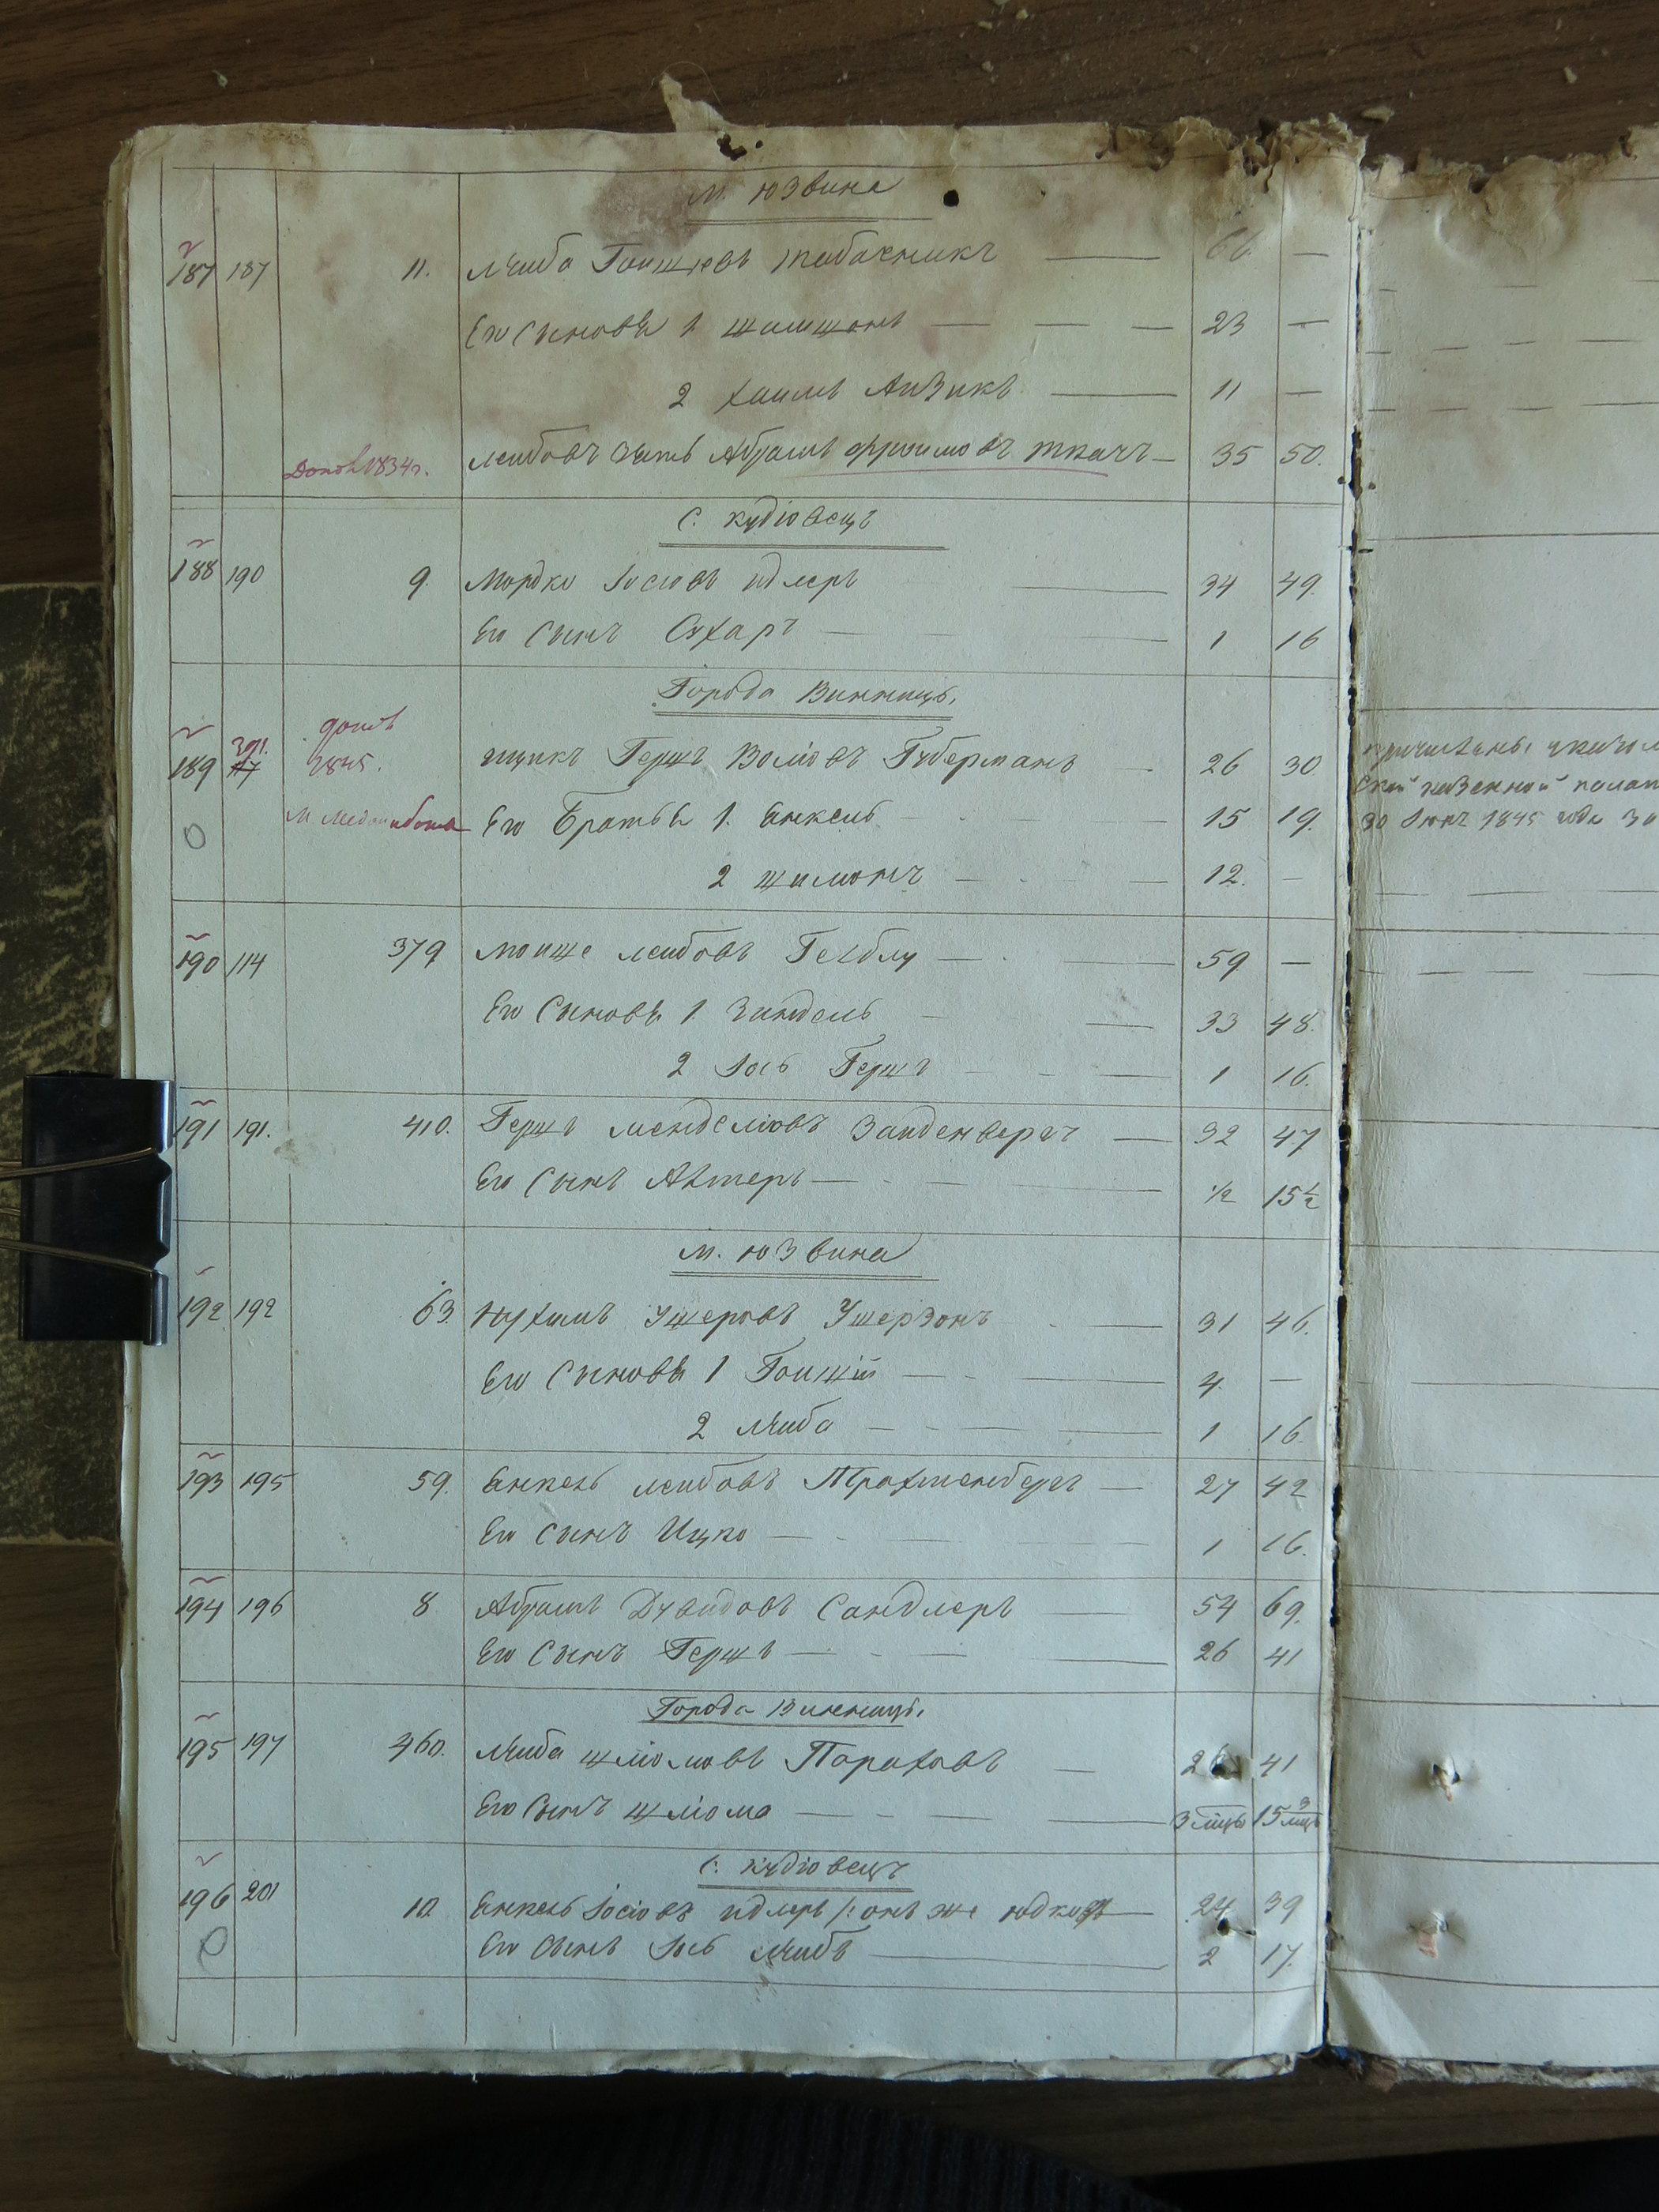 м. Юзвина
187 187 11. Лейба Гоишиовъ Табачникъ — 66. —
Его Сыновья 1 Шимшонъ — — — 23 —
2 Хаимъ Аизикъ — 11 —
Допол 1834 г. Леибовъ зять Абрамъ Фроимовъ Ткачъ — 35 50.
С. Кудіовецъ
188 190 9. Мордко Іосіовъ Идлеръ — 34 49.
Его Сынъ Сухаръ — — 1 16
Города Винницы.
допол
189 391. 1845. Ицикъ Гершъ Волiовъ Губерманъ — 26 30 причислены
ской казенной
м Меджибожа Его Братья 1. Янкель — — 15 19. 30 1845 года
0
2 Шимонъ — - — 12. —
190 114 379 Моише Леибовъ Гехблу — . — 59 —
Его Сыновья 1. Зиндель — — 33 48.
2 Іось Гершъ — - — 1 16.
191 191. 410. Гершъ Менделіовъ Заиденвергъ — 32 47
Его Сынъ Ахтеръ — - — — 1/2 15 1/2
м. Юзвина
192 192 63. Нухимъ Ушеровъ Ушерзонъ - — 31 46.
Его Сыновья 1 Гоишій — - — 4. —
2 Лейба — - — — 1 16.
193 195 59. Янкель Леибовъ Трахтенбергъ — 27 42
Его Сынъ Ицко — - — — 1 16.
194 196 8 Абрамъ Дувидовъ Сандлеръ — 54 69.
Его Сынъ Гершъ — - — — 26 41
Города Винницы.
195 197 460. Лейба Шліомовъ Пороховъ — 26 41
Его Сынъ Шліома — - — — 3 мцы 15 3 мцы
С. Кудіовецъ
196 201 10. Янкель Іосіовъ Идлеръ /: онъ же Юдко — 24 39
0 Его Сынъ Іось Лейбъ — 2 17.